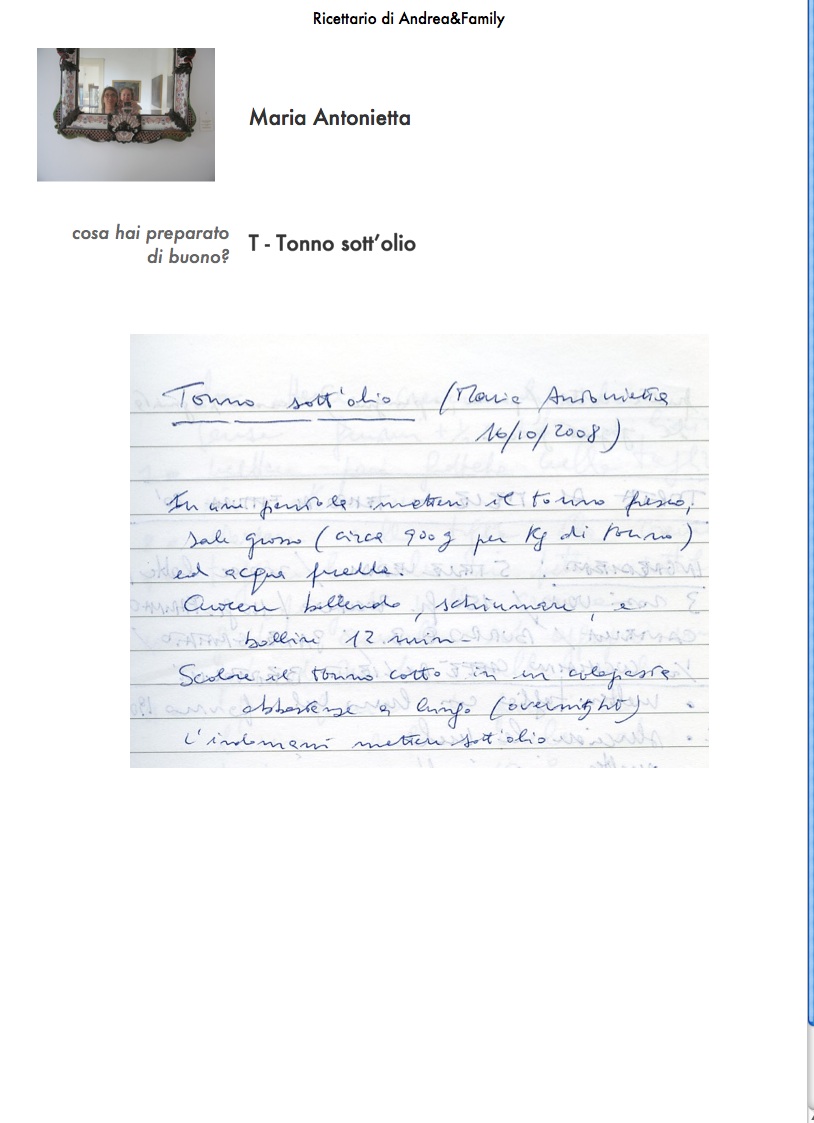 Ricettario di Andrea&Family
Maria Antonietta
cosa hai preparato
di buono?
T - Tonno sott'olio
Tonno sott'olio (Maria Antonietta
16/10/2008)
In una pentola mettere il tonno fresco,
sale grosso (circa 900g per Kg di tonno)
ed acqua fredda.
Cuocere bollendo, schiumare, e
bollire 12 min.
Scolare il tonno cotto in un colapasta
abbastanza a lungo (overnight)
L'indomani mettere sott'olio